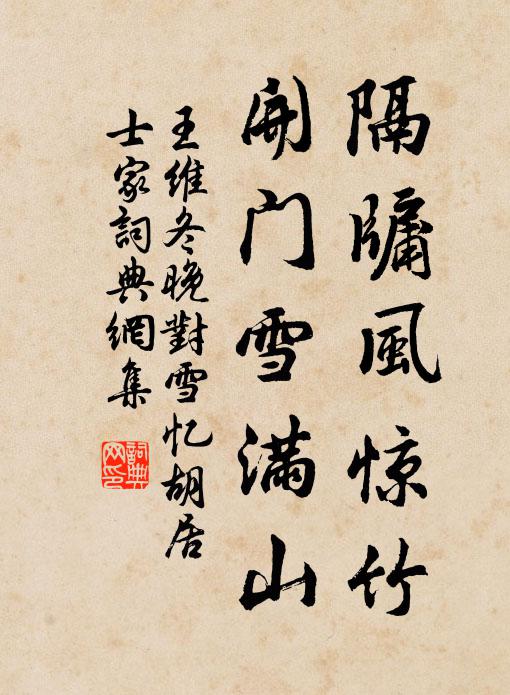 隔牖風惊竹
開门雪满山
王維冬晚對雪忆胡居
士家詞典網集
詞典网印